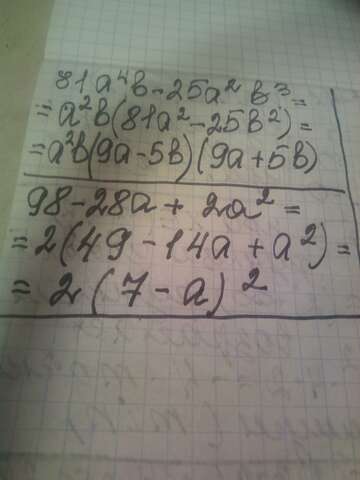 81a⁴b - 25a² b³ =
= a²b(81a² - 25b²) =
= a²b(9a - 5b)(9a + 5b)
98 - 28a + 2a² =
= 2(49 - 14a + a²) =
= 2(7 - a)²